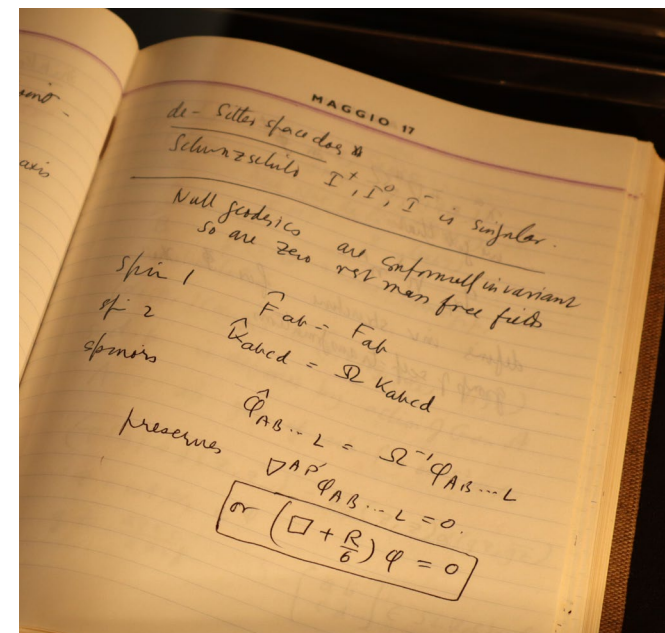 ment-
axis
MAGGIO 17
de-Sitter space does
Schwarzschild I⁺, I⁰, I⁻ is singular.
Null geodesics are conformally invariant
so are zero rest mass free fields
spin 1 F̂ab = Fab
sp 2 K̂abcd = Ω Kabcd
spinors φ̂AB...L = Ω⁻¹ φAB...L
preserves ∇AP′ φAB...L = 0.
or (□ + R/6) φ = 0